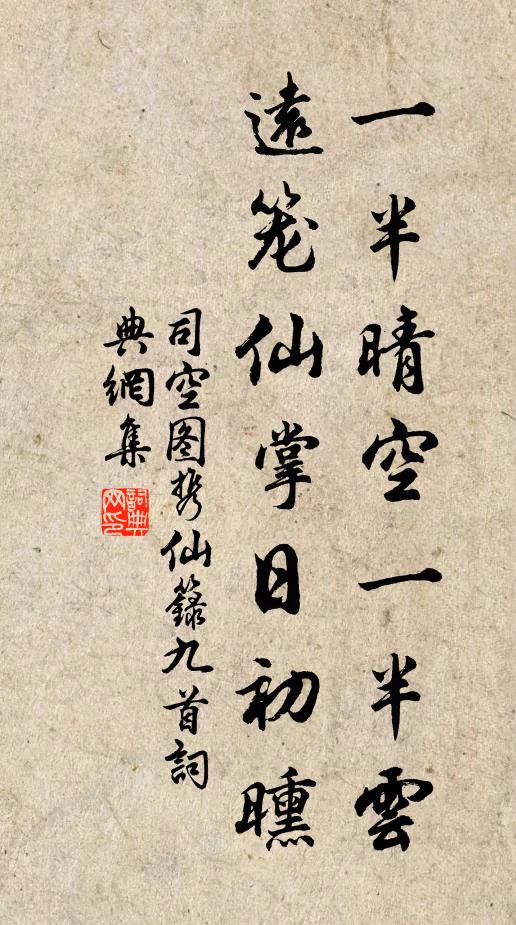 一半晴空一半雲
遠笼仙掌日初曛
司空图携仙籙九首詞
典網集
詞典
网印